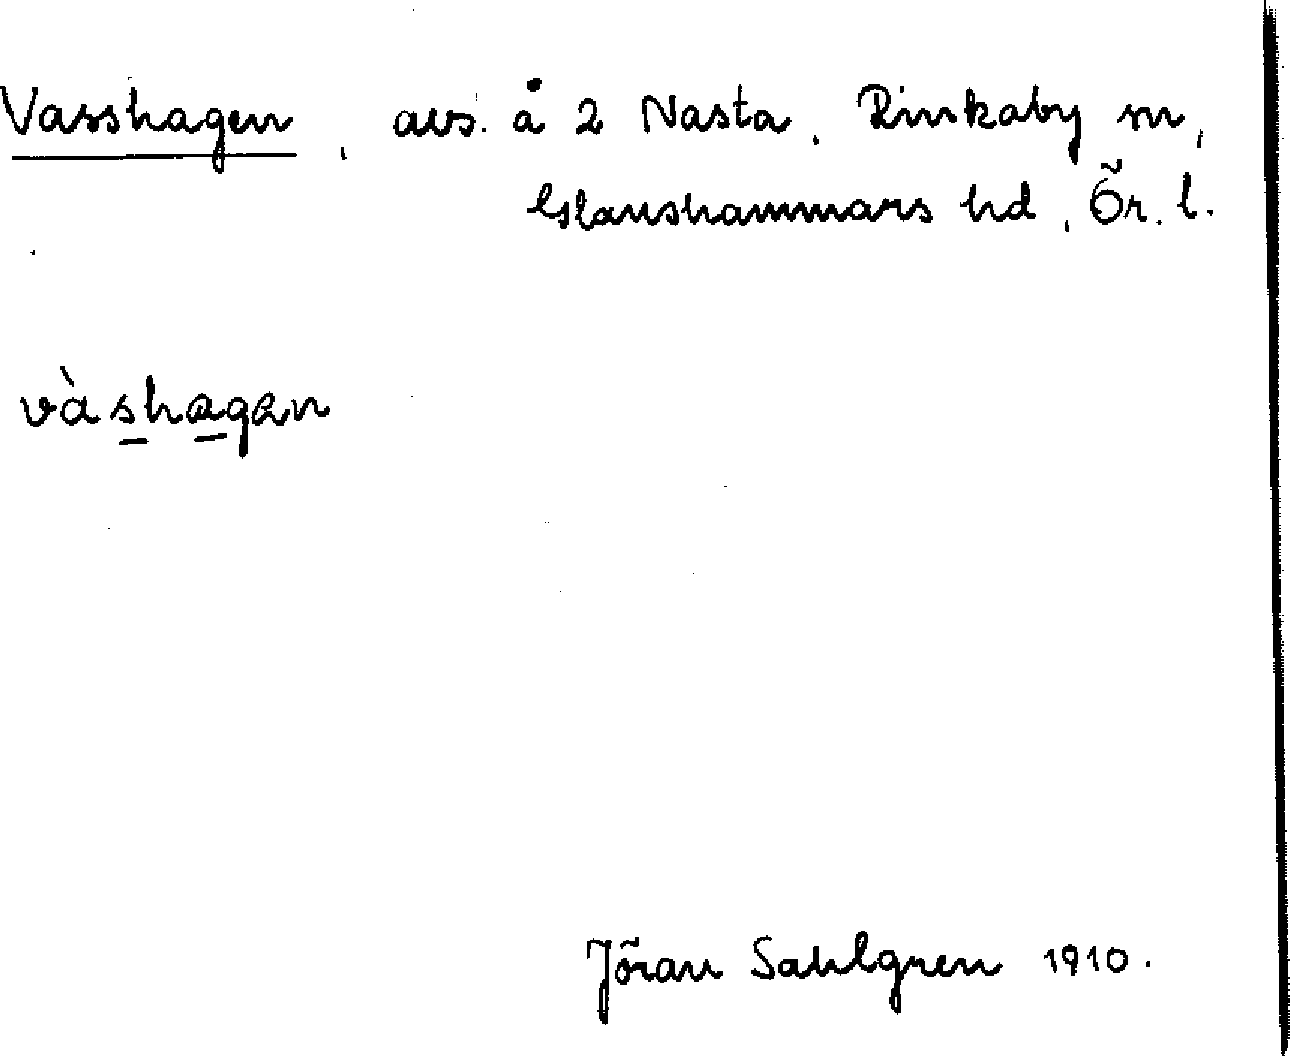 Vasshagen, avs. å 2 Nasta, Rinkaby sn,
Glanshammars hd, Ör. l.
vàshagan
Jöran Sahlgren 1910.